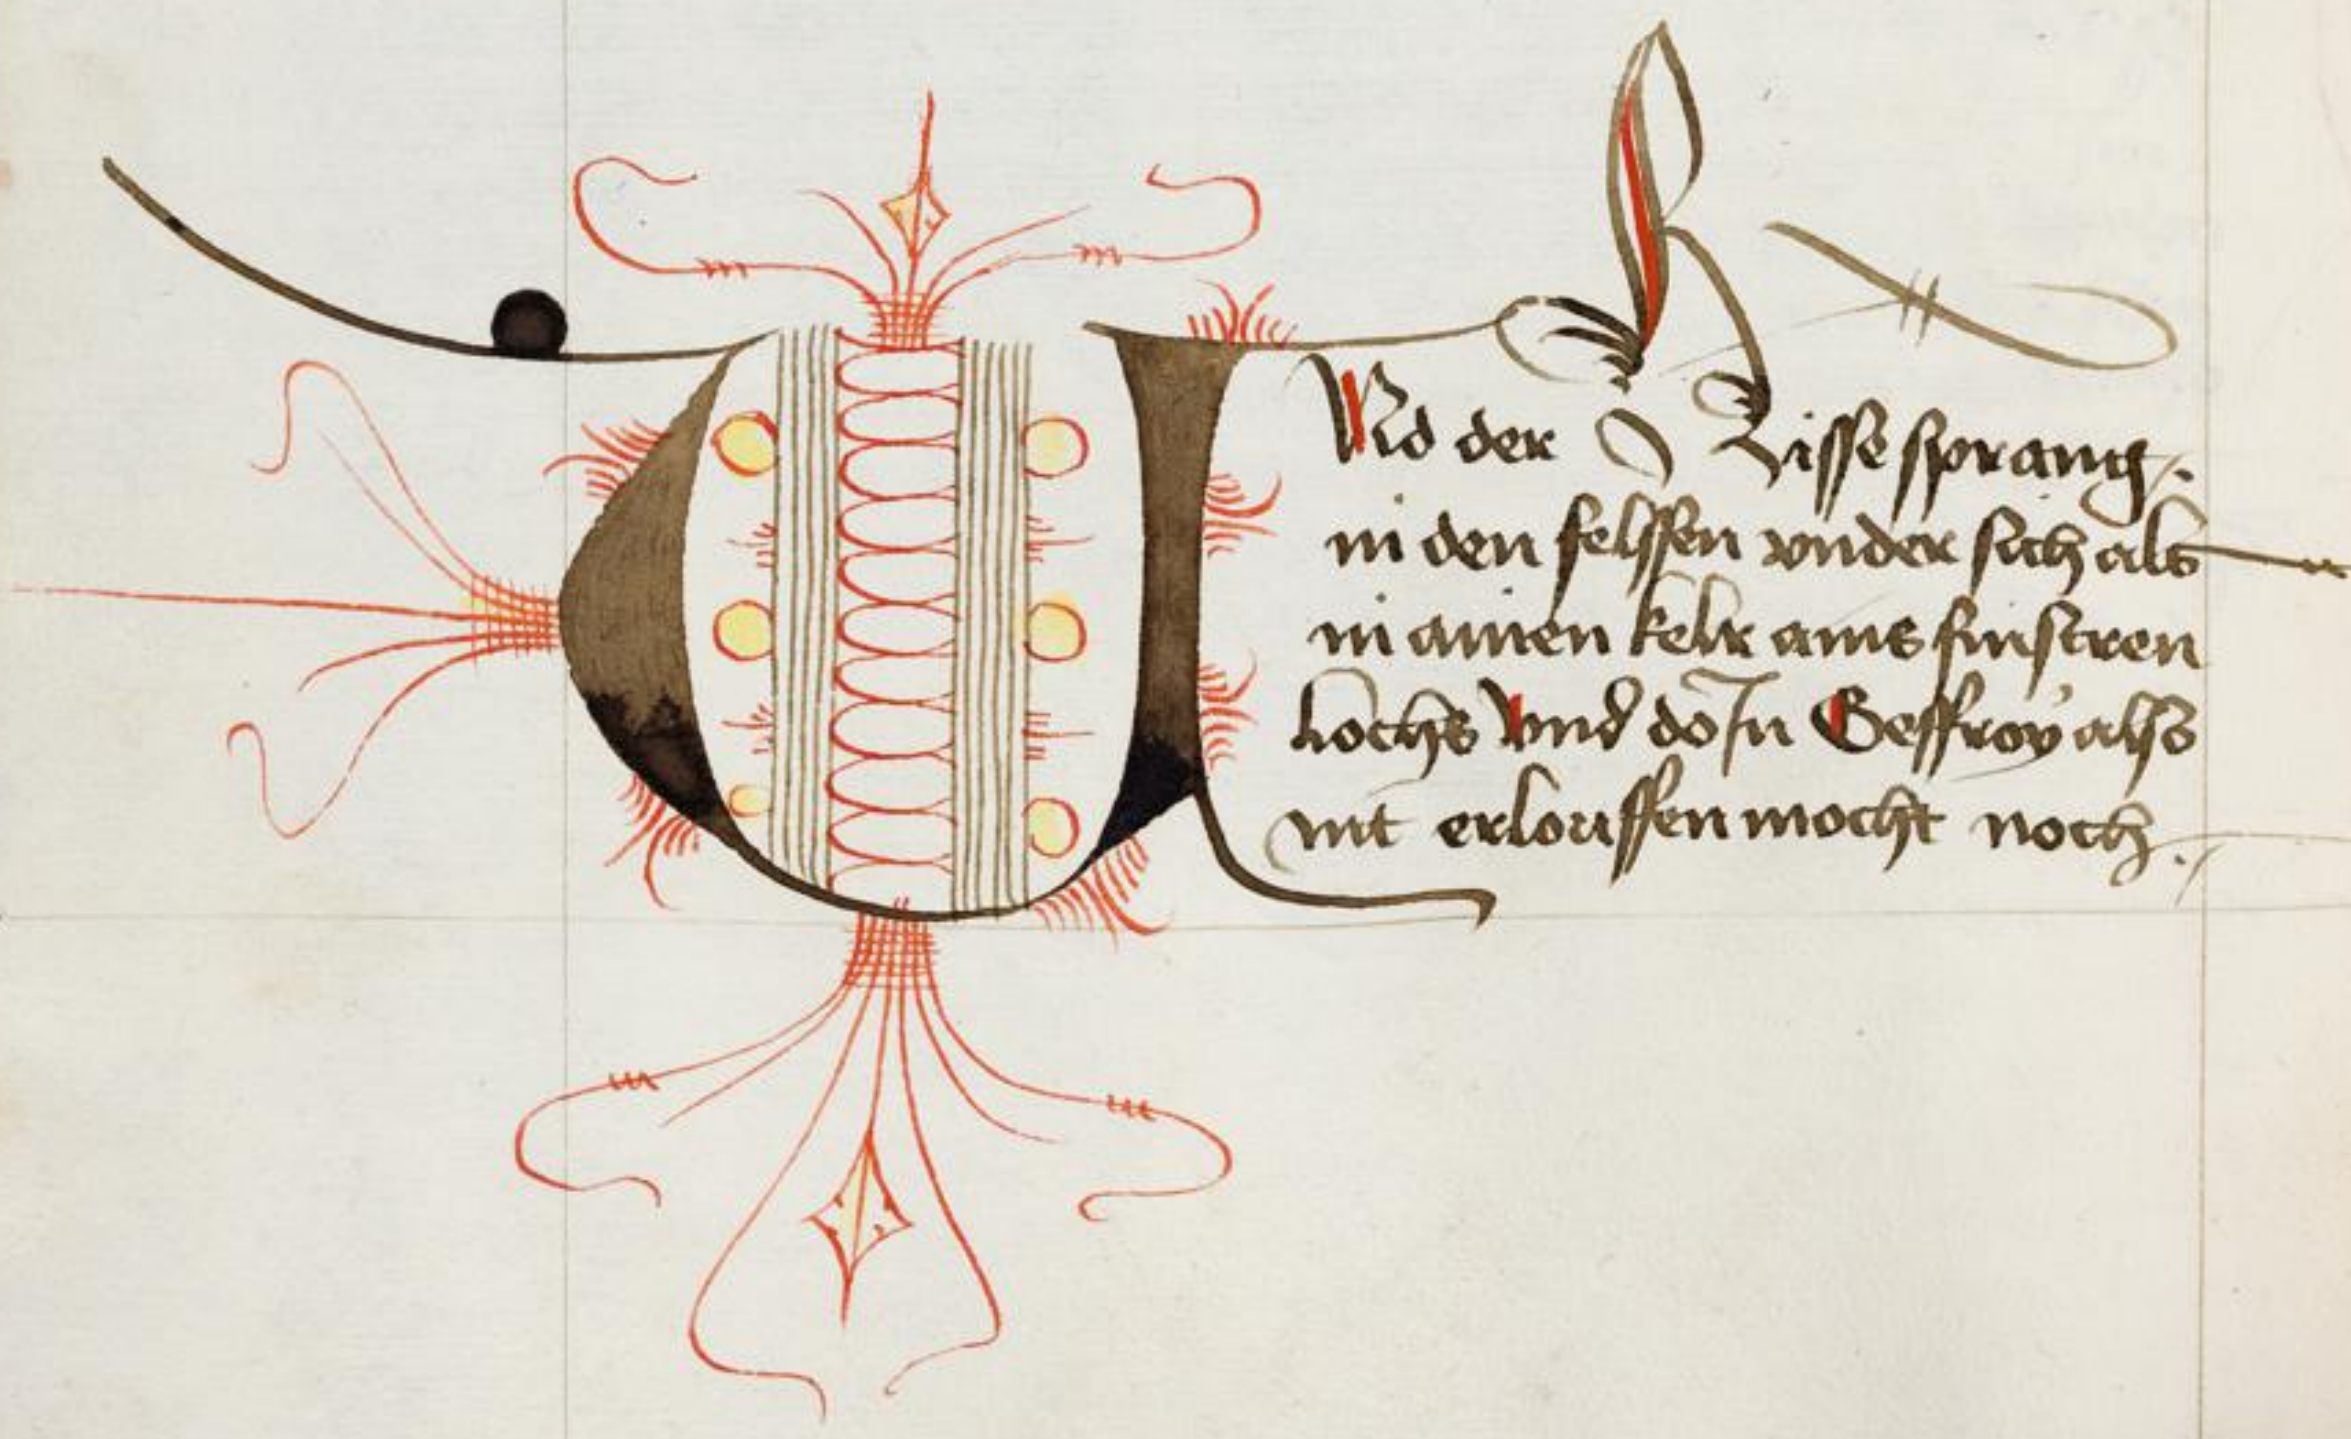 UNd der Risse sprang.
in den felssen vnder sich als
in ainen keler ains finstren
Lochs Vnd do In Geffroy also
nit erlouffen mocht noch.